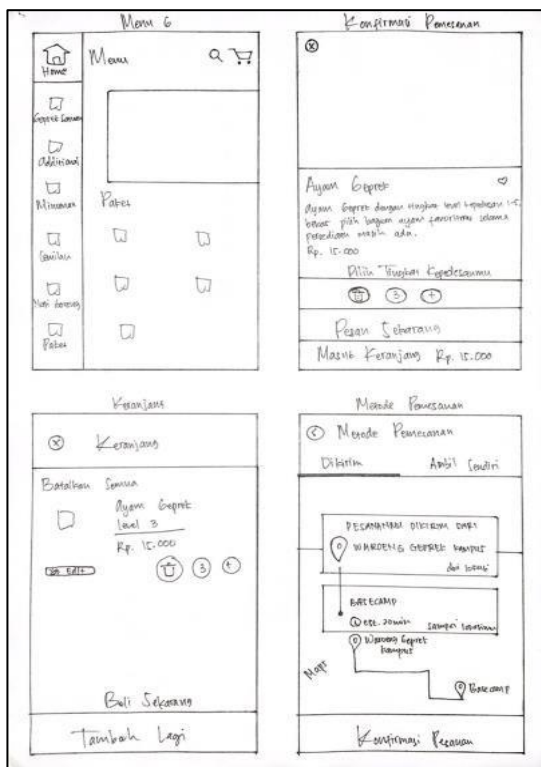 Menu 6
Home
Menu
Geprek Satuan
Additional
Minuman
Cemilan
Nasi Goreng
Paket
Paket
Konfirmasi Pemesanan
Ayam Geprek
Ayam Geprek dengan tingkat level kepedasan 1-5,
bebas pilih bagian ayam favoritmu selama
persediaan masih ada.
Rp. 15.000
Pilih Tingkat Kepedasanmu
3 +
Pesan Sekarang
Masuk Keranjang Rp. 15.000
Keranjang
Keranjang
Batalkan Semua
Ayam Geprek
level 3
Rp. 15.000
Edit
3 +
Beli Sekarang
Tambah Lagi
Metode Pemesanan
Metode Pemesanan
Dikirim Ambil Sendiri
PESANANMU DIKIRIM DARI
WAROENG GEPREK KAMPUS
dari lokasi
BASECAMP
est. 20 min sampai lokasimu
Waroeng Geprek
kampus
Maps
Basecamp
Konfirmasi Pesanan